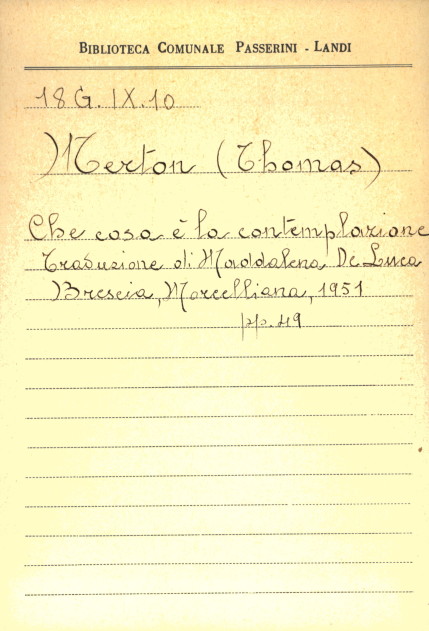 BIBLIOTECA COMUNALE PASSERINI - LANDI
18 G. IX. 10
Merton (Thomas)
Che cosa è la contemplazione
Traduzione di Maddalena De Luca
Brescia, Morcelliana, 1951
pp. 49